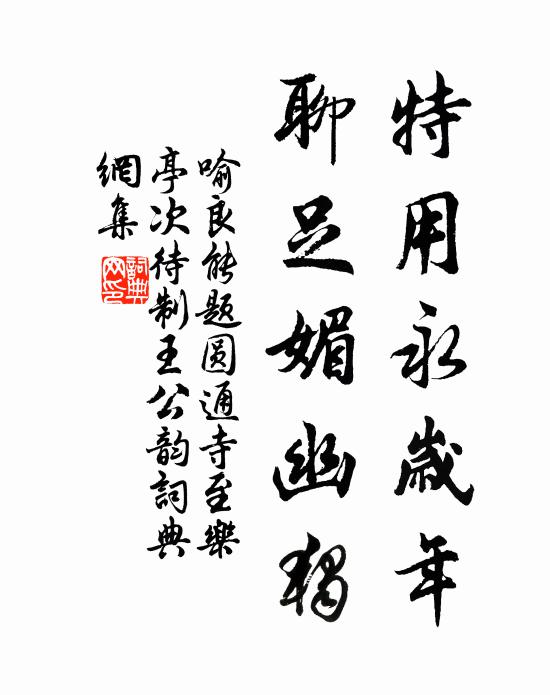 特用永歲年
聊足媚幽獨
喻良能題圆通寺至樂
亭次待制王公韵詞典
網集
詞典網印